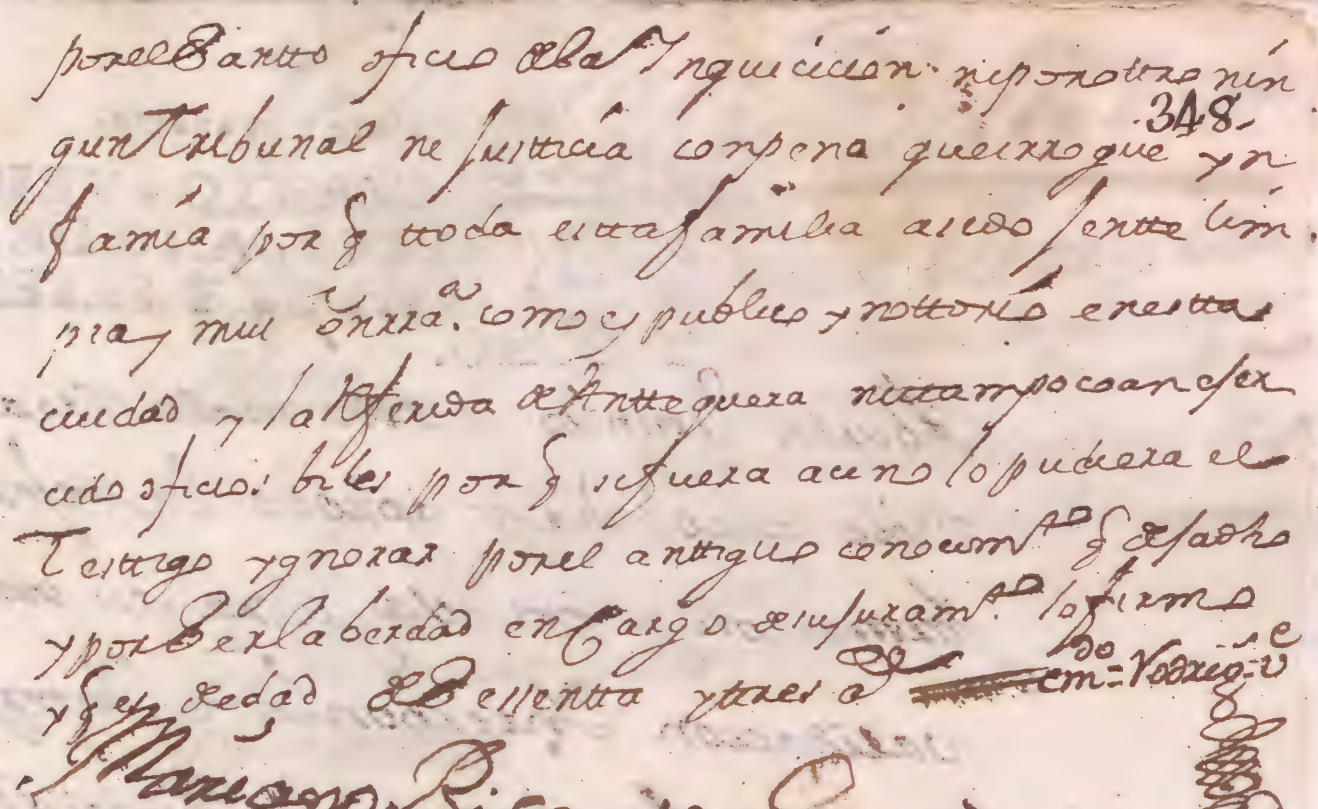 por el Santto oficio de la Inquicicion ni por ottro nin
348
gun Tribunal ne Justticia con pena que irrogue yn
famia por q ttoda estta familia a sido Jentte lim
pia y muy onrra.ᵃ como es publico y nottorio en estta
ciudad y la Referida de Antteguera ni ttampoco an ejer
cido oficios biles por q si fuera aci no lo pudiera el
Testtigo ygnorar por el anttiguo conocimᵗᵒ q desa dho
y por Ser la berdad en Cargo de su Juramᵗᵒ lo firmo
y q es de edad de Sessentta y ttres a emᵈᵒ
Mariano